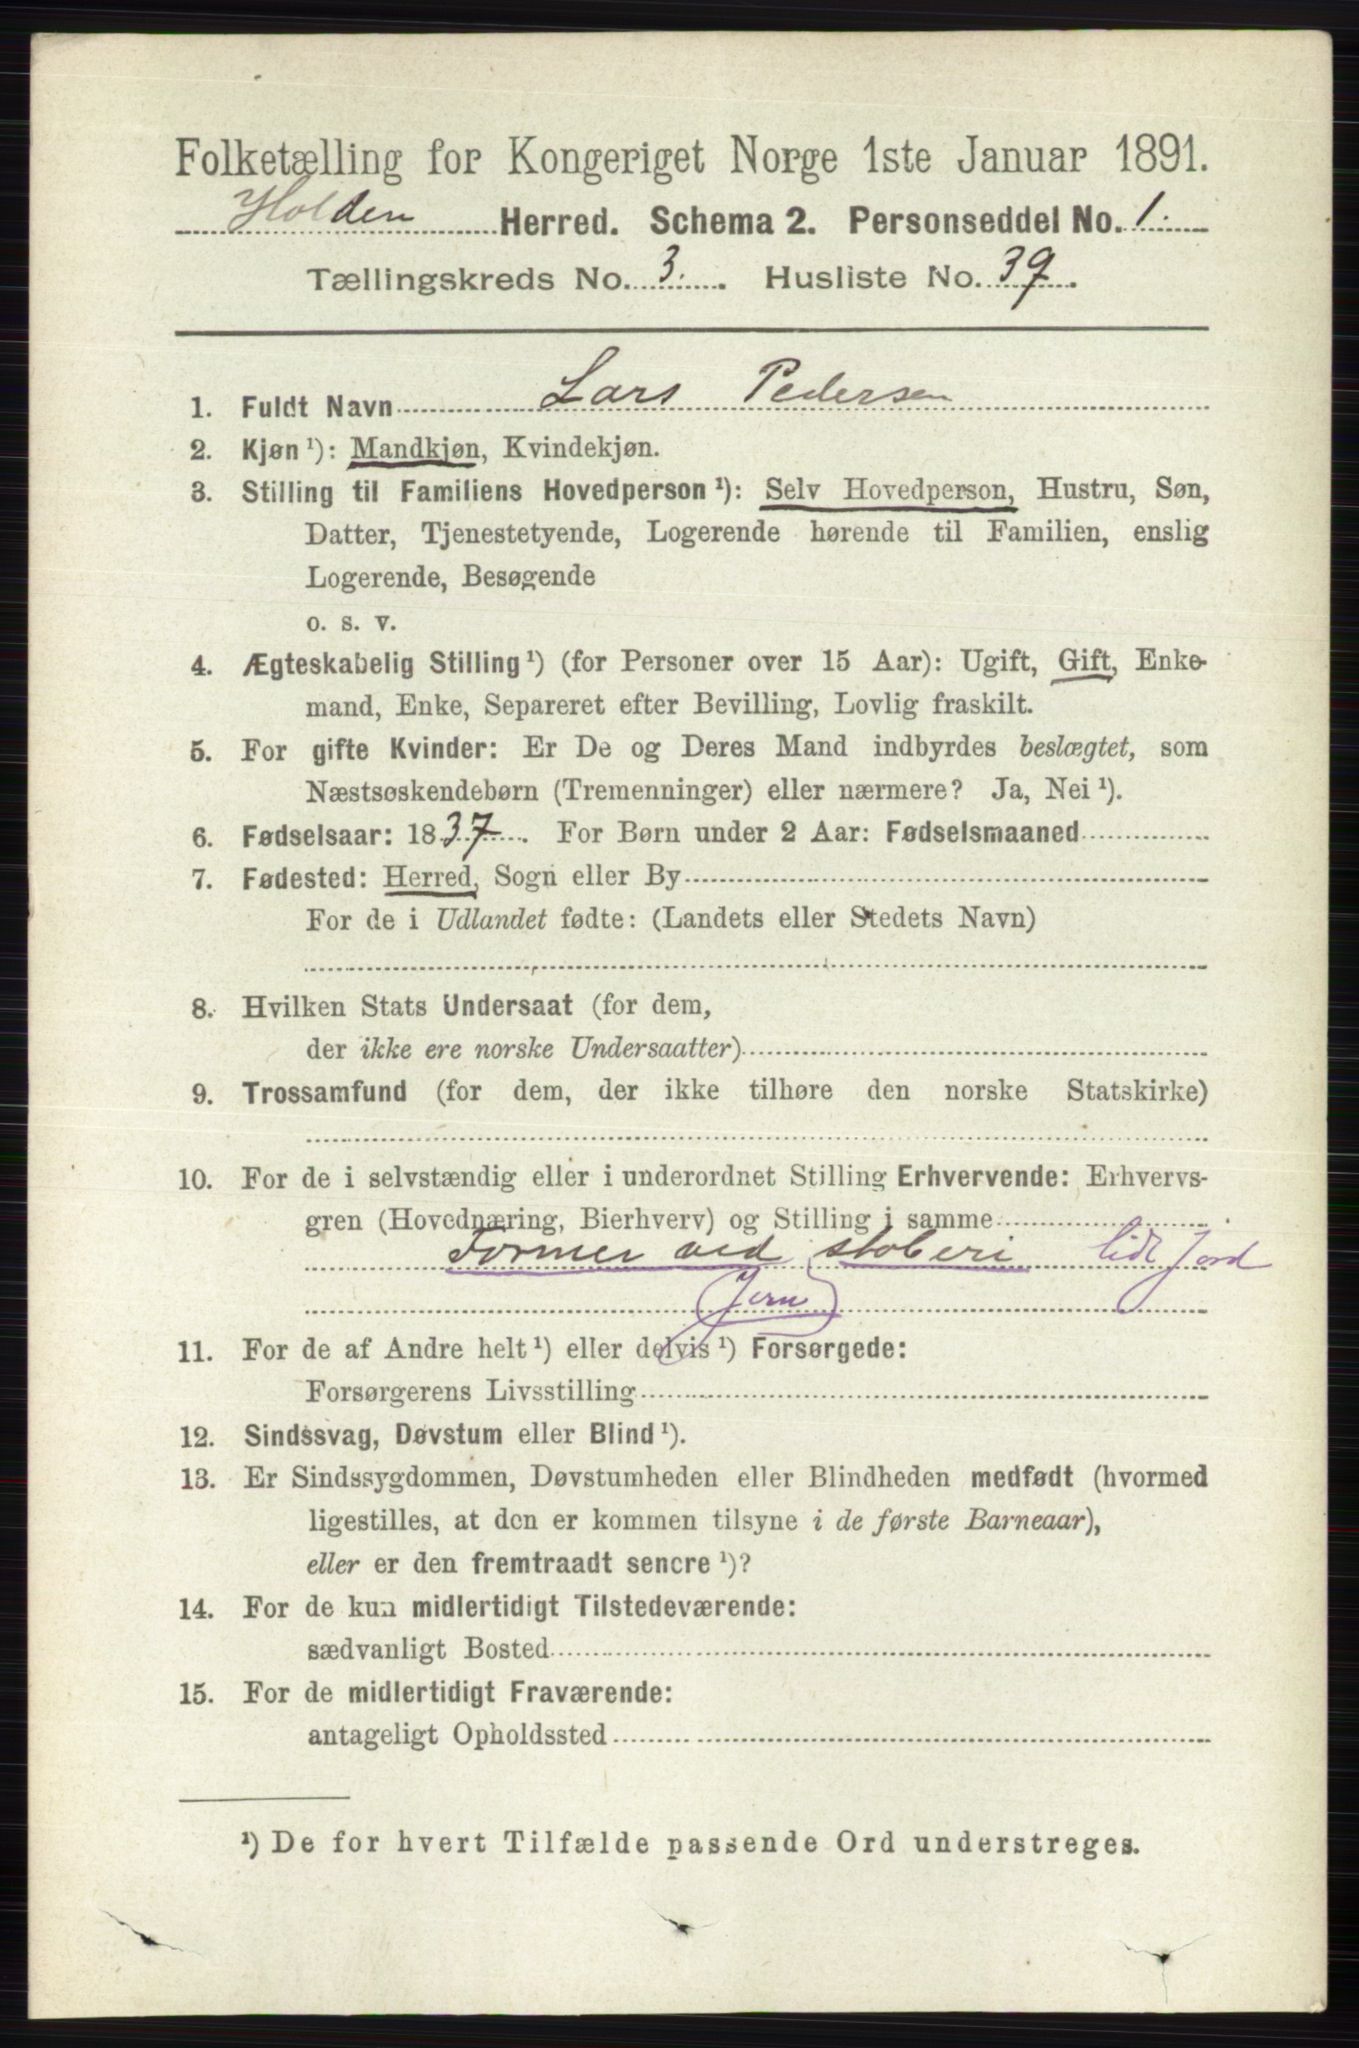 Folketælling for Kongeriget Norge 1ste Januar 1891.
Holden Herred. Schema 2. Personseddel No. 1.
Tællingskreds No. 3. Husliste No. 39.
1. Fuldt Navn Lars Pedersen
2. Kjøn ¹): Mandkjøn, Kvindekjøn.
3. Stilling til Familiens Hovedperson ¹): Selv Hovedperson, Hustru, Søn,
Datter, Tjenestetyende, Logerende hørende til Familien, enslig
Logerende, Besøgende
o. s. v.
4. Ægteskabelig Stilling ¹) (for Personer over 15 Aar): Ugift, Gift, Enke-
mand, Enke, Separeret efter Bevilling, Lovlig fraskilt.
5. For gifte Kvinder: Er De og Deres Mand indbyrdes beslægtet, som
Næstsøskendebørn (Tremenninger) eller nærmere? Ja, Nei ¹).
6. Fødselsaar: 1837. For Børn under 2 Aar: Fødselsmaaned
7. Fødested: Herred, Sogn eller By
For de i Udlandet fødte: (Landets eller Stedets Navn)
8. Hvilken Stats Undersaat (for dem,
der ikke ere norske Undersaatter)
9. Trossamfund (for dem, der ikke tilhøre den norske Statskirke)
10. For de i selvstændig eller i underordnet Stilling Erhvervende: Erhvervs-
gren (Hovednæring, Bierhverv) og Stilling i samme
Former ved støberi lidt Jord
Jern
11. For de af Andre helt ¹) eller delvis ¹) Forsørgede:
Forsørgerens Livsstilling
12. Sindssvag, Døvstum eller Blind ¹).
13. Er Sindssygdommen, Døvstumheden eller Blindheden medfødt (hvormed
ligestilles, at den er kommen tilsyne i de første Barneaar),
eller er den fremtraadt senere ¹)?
14. For de kun midlertidigt Tilstedeværende:
sædvanligt Bosted
15. For de midlertidigt Fraværende:
antageligt Opholdssted
¹) De for hvert Tilfælde passende Ord understreges.